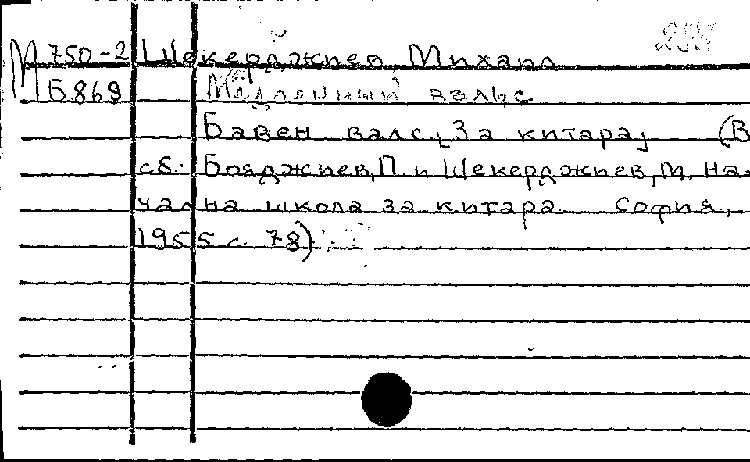 М 750-2 Шекерджиев, Михаил
Б869 Медленный вальс
Бавен валс [За китара] (В
сб. Бояджиев, П. и Шекерджиев, М. На-
чална школа за китара София,
1955 с. 78)